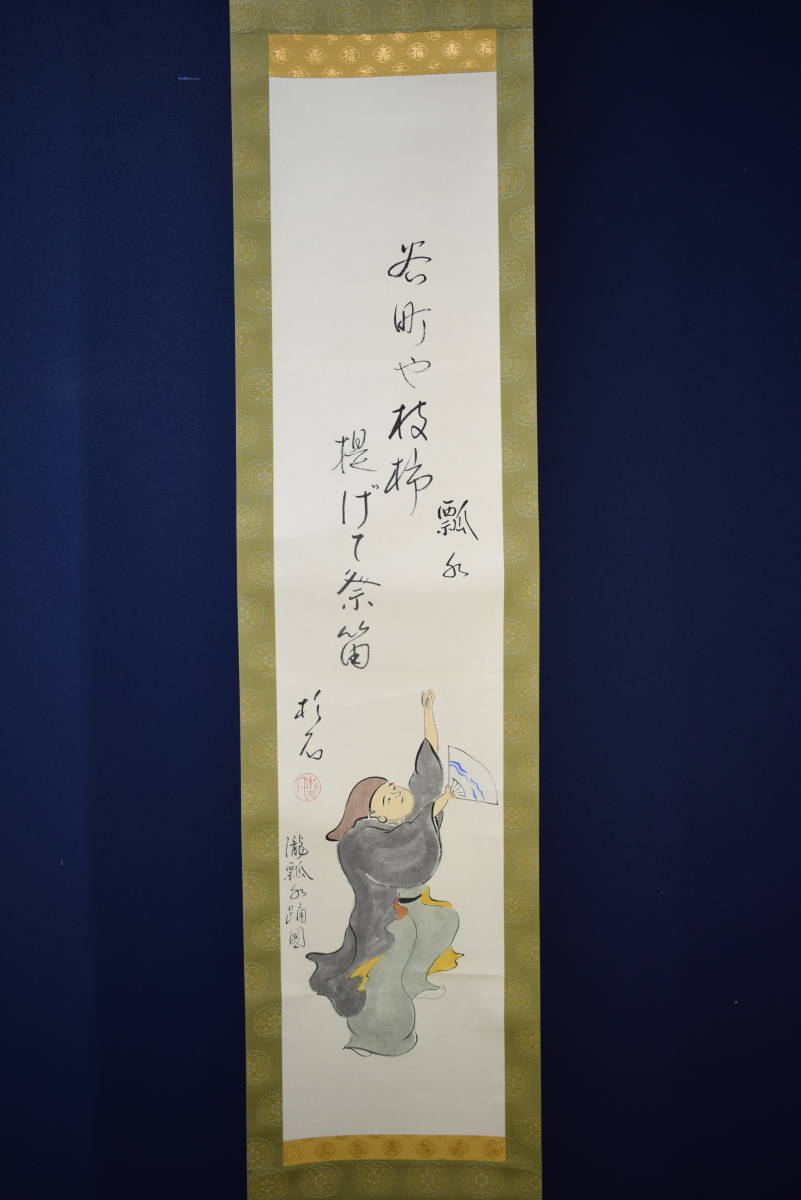 瓢水
谷町や枝柿
提げて祭笛
杉石
瀧瓢水踊図